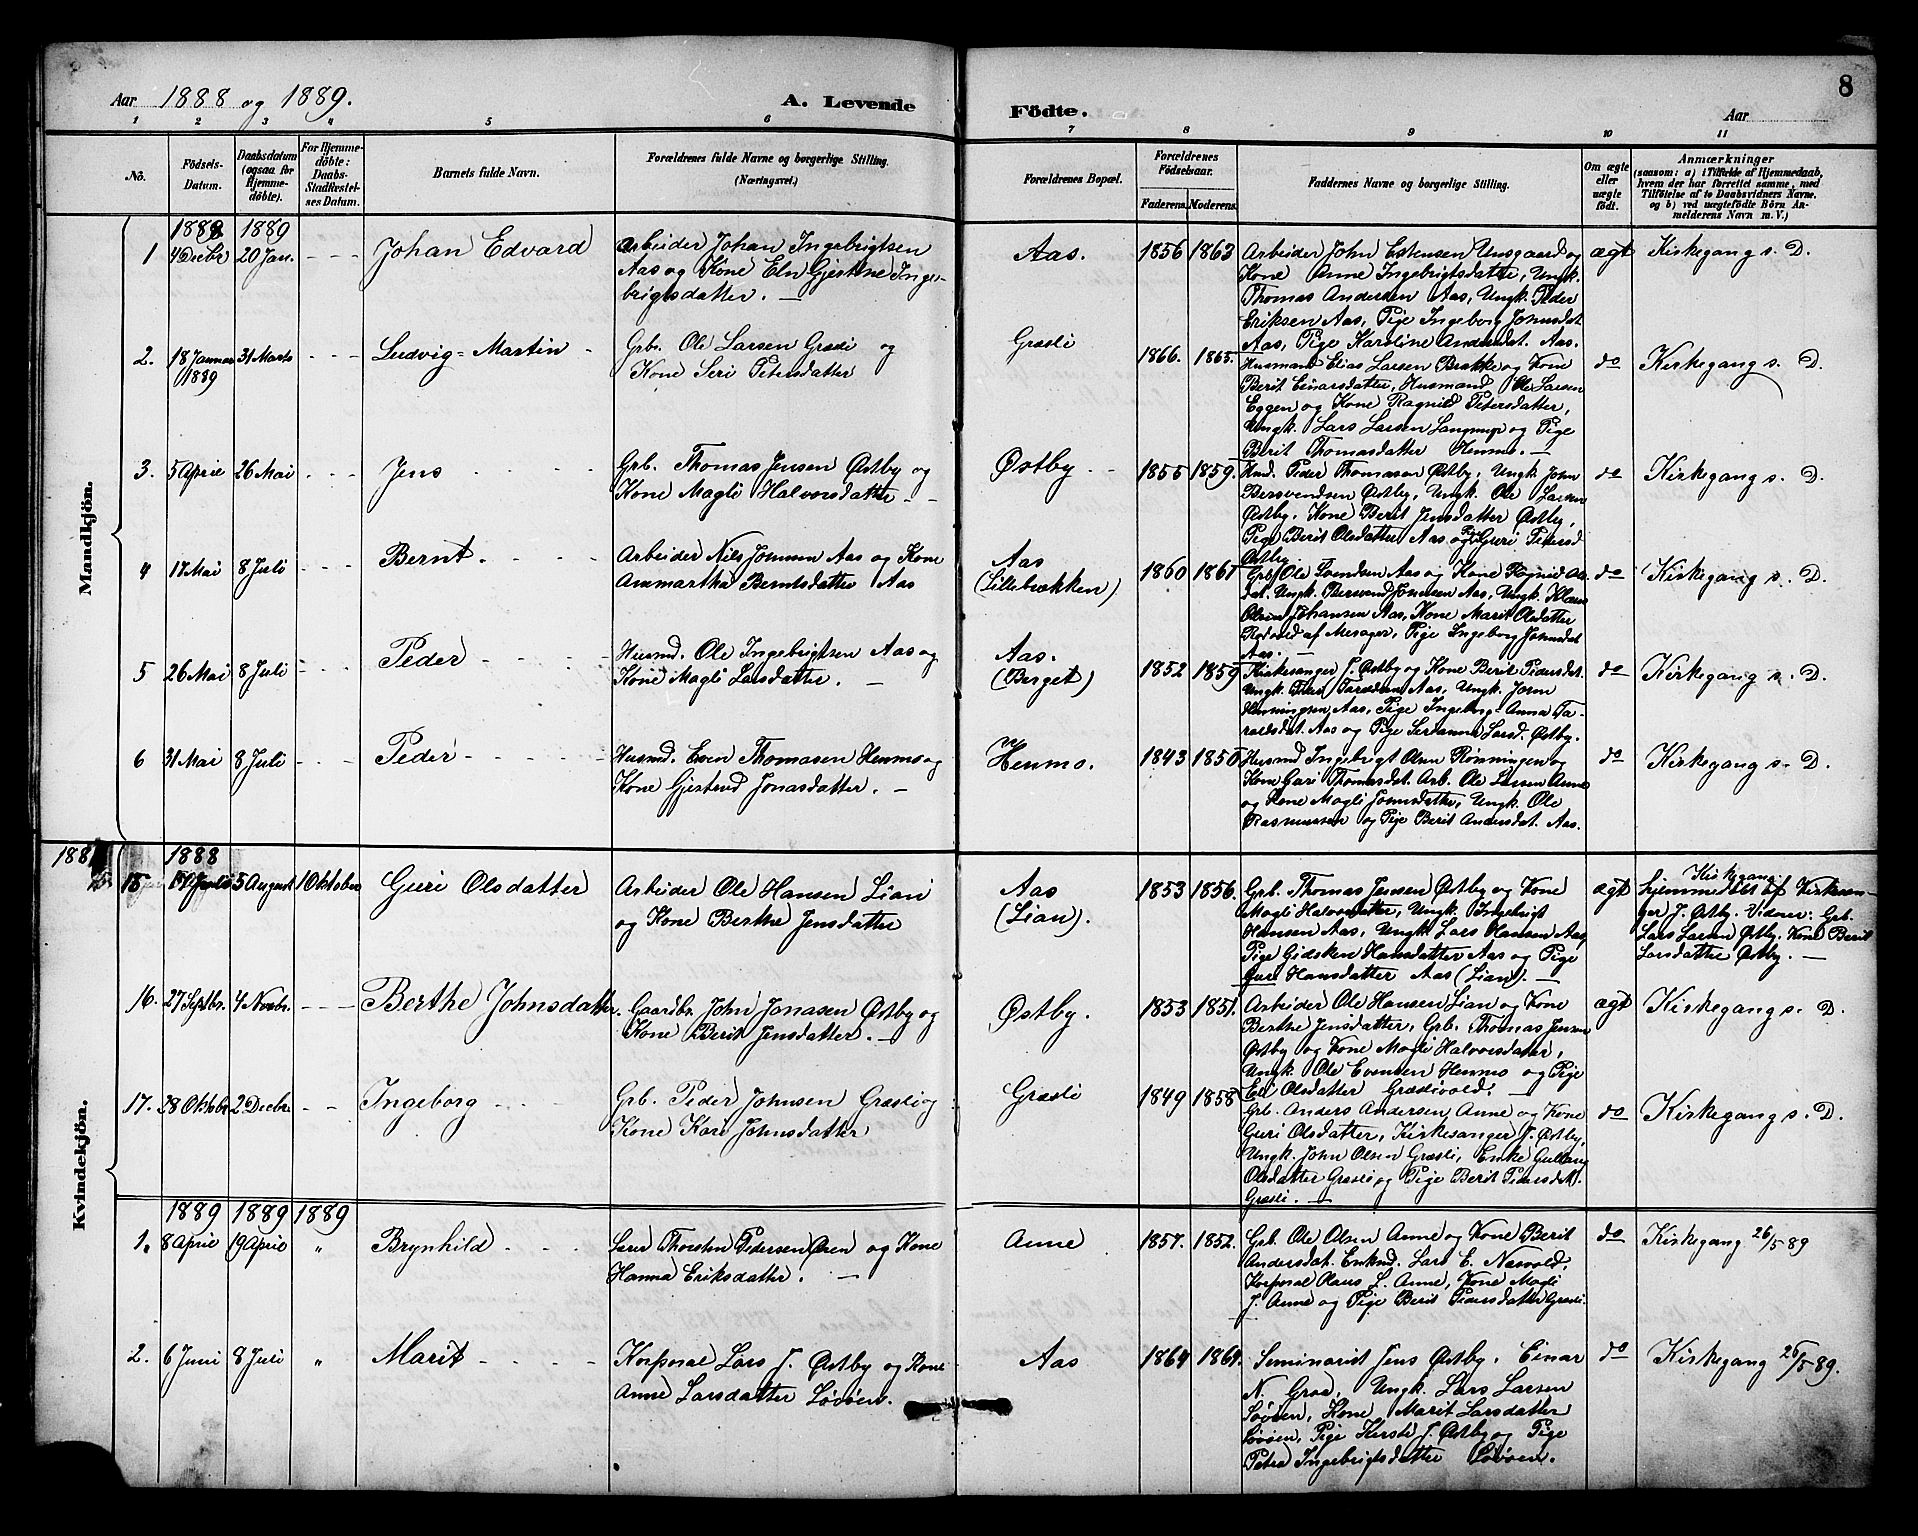 Aar 1888 og 1889.
A. Levende
Födte.
Aar
8
1 2 3 4 5 6 7 8 9 10 11
No.
Födsels-
Datum.
Daabsdatum
(ogsaa for
Hjemme-
døbte).
For Hjemme-
döbte:
Daabs-
Stadfæstel-
ses Datum.
Barnets fulde Navn.
Forældrenes fulde Navne og borgerlige Stilling.
(Næringsvei.)
Forældrenes Bopæl.
Forældrenes
Födselsaar.
Faderens. Moderens.
Faddernes Navne og borgerlige Stilling.
Om ægte
eller
uægte
födt.
Anmærkninger
(saasom: a) i Tilfælde af Hjemmedaab,
hvem der har forrettet samme, med
Tilföielse af to Daabsvidners Navne,
og b) ved uægtefödte Börn An-
melderens Navn m. V.)
Mandkjön.
1888 1889
1 4 Decbr 20 Jan. Johan Edvard
Arbeider Johan Ingebrigtsen
Aas og Kone Eln Gjertine Inge-
brigtsdatter. —
Aas.
1856 1863
Arbeider John Estensen Unsgaard og
Kone Anne Ingebrigtsdatter, Ungk.
Thomas Andersen Aas, Ungk. Peder
Eriksen Aas, Pige Ingeborg Johnsdat.
Aas, Pige Karoline Andersdat. Aas.
ægt
Kirkegang s. D.
2. 18 Januar 31 Marts Ludvig-Martin
1889
Grb. Ole Larsen Græsli og
Kone Seri Petersdatter
Græsli
1866. 1865.
Husmand Elias Larsen Brække og Kone
Berit Einarsdatter, Husmand Ole Larsen
Eggen og Kone Ragnild Petersdatter,
Ungk. Lars Larsen og Pige
Berit Thomasdatter Henmo. —
do
Kirkegang s. D.
3. 5 April 26 Mai Jens
Grb. Thomas Jensen Østby og
Kone Magli Halvorsdatter
Østby
1855 1859.
Peder Thomasen Østby, Ungk. John
Bersvendsen Østby, Ungk. Ole Larsen
Østby, Kone Berit Jensdatter Østby,
Pige Berit Olsdatter Aas og Pige Guri Petersd
Østby
do
Kirkegang s. D.
4 17 Mai 8 Juli Bernt.
Arbeider Nils Johnsen Aas og Kone
Anmartha Berntsdatter Aas
Aas
(Lillebækken)
1860 1861
Grb. Ole Svendsen Aas og Kone Ragnid Ols-
dat. Ungk. Bersvend Jonesen Aas, Ungk. Klaus
Johansen Aas, Kone Marit Olsdatter
af Merager, Pige Ingeborg Johnsdat
Aas.
do
Kirkegang s. D.
5 26 Mai 8 Juli Peder
Husmd. Ole Ingebrigtsen Aas og
Kone Magli Larsdatter. —
Aas.
(Berget)
1852 1859
Kirkesanger J. Østby og Kone Berit Pedersdat.
Ungk. Aas, Ungk. John
Henningsen Aas, Pige Ingeborg-Anna Ta-
raldsdat. Aas og Pige Larsd. Østby.
do
Kirkegang s. D.
6 31 Mai 8 Juli Peder
Husmd. Even Thomasen Henmo og
Kone Gjertrud Jonasdatter. —
Henmo.
1843 1850
Husmd Ingebrigt Olsen Rønningen og
Kone Guri Thomasdat. Arb. Ole Larsen Anne
og Kone Magli Johnsdatter, Ungk. Ole
Rasmussen og Pige Berit Andersdat. Aas.
do
Kirkegang s. D.
Kvindekjön.
1888
15 17 Juli 5 August 1 Oktober Guri Olsdatter
Arbeider Ole Hansen Lian
og Kone Berthe Jensdatter
Aas
(Lian).
1853 1856.
Grb. Thomas Jensen Østby og Kone
Magli Halvorsdatter, Ungk. Ingebrigt
Hansen Aas, Ungk. Lars Hansen Aas,
Pige Gidsken Hansdatter Aas og Pige
Guri Hansdatter Aas (Lian). —
ægt
Kirkegang
Hjemmedøbt af Kirkesan-
ger J. Østby. Vidner: Grb.
Lars Larsen Østby. Kone Berit
Larsdatter Østby. —
16. 27 Septbr. 4 Novbr. Berthe Johnsdatter.
Gaardbr. John Jonasen Østby og
Kone Berit Jensdatter. —
Østby.
1853 1851.
Arbeider Ole Hansen Lian og Kone
Berthe Jensdatter, Grb. Thomas Jensen
Østby og Kone Magli Halvorsdatter,
Ungk. Ole Evensen Henmo og Pige
Eli Olsdatter Græslivold. —
ægt
Kirkegang s. D.
17. 28 Oktobr 2 Decbr. Ingeborg
Grb. Peder Johnsen Græsli og
Kone Kari Johnsdatter
Græsli
1849 1858
Grb. Anders Andersen Anne og Kone
Guri Olsdatter, Kirkesanger J. Østby,
Ungk. John Olsen Græsli, Enke Gullaug
Olsdatter Græsli og Pige Berit Pedersdat.
Græsli. —
do
Kirkegang s. D.
1889 1889 1889
1. 8 April 19 April „ Brynhild
Thorsten Pedersen Øien og Kone
Hanna Eriksdatter. —
Anne
1857. 1852.
Grb. Ole Olsen Anne og Kone Berit
Andersdat. Enkmd. Lars E. Næsvold,
Korporal Claus L. Anne, Kone Magli
J. Anne og Pige Berit Pedersdatter Græsli.
do
Kirkegang 26/5 89
2. 6 Juni 8 Juli „ Marit
Korporal Lars J. Østby og Kone
Anne Larsdatter Løvøen.
Aas
1864 1864.
Seminarist Jens Østby. Einar
N. Graa, Ungk. Lars Larsen
Løvøen, Kone Marit Larsdatter
Løvøen, Pige Kirsti J. Østby og Pige
Petra Ingebrigtsdatter Løvøen.
do
Kirkegang 26/5 89.